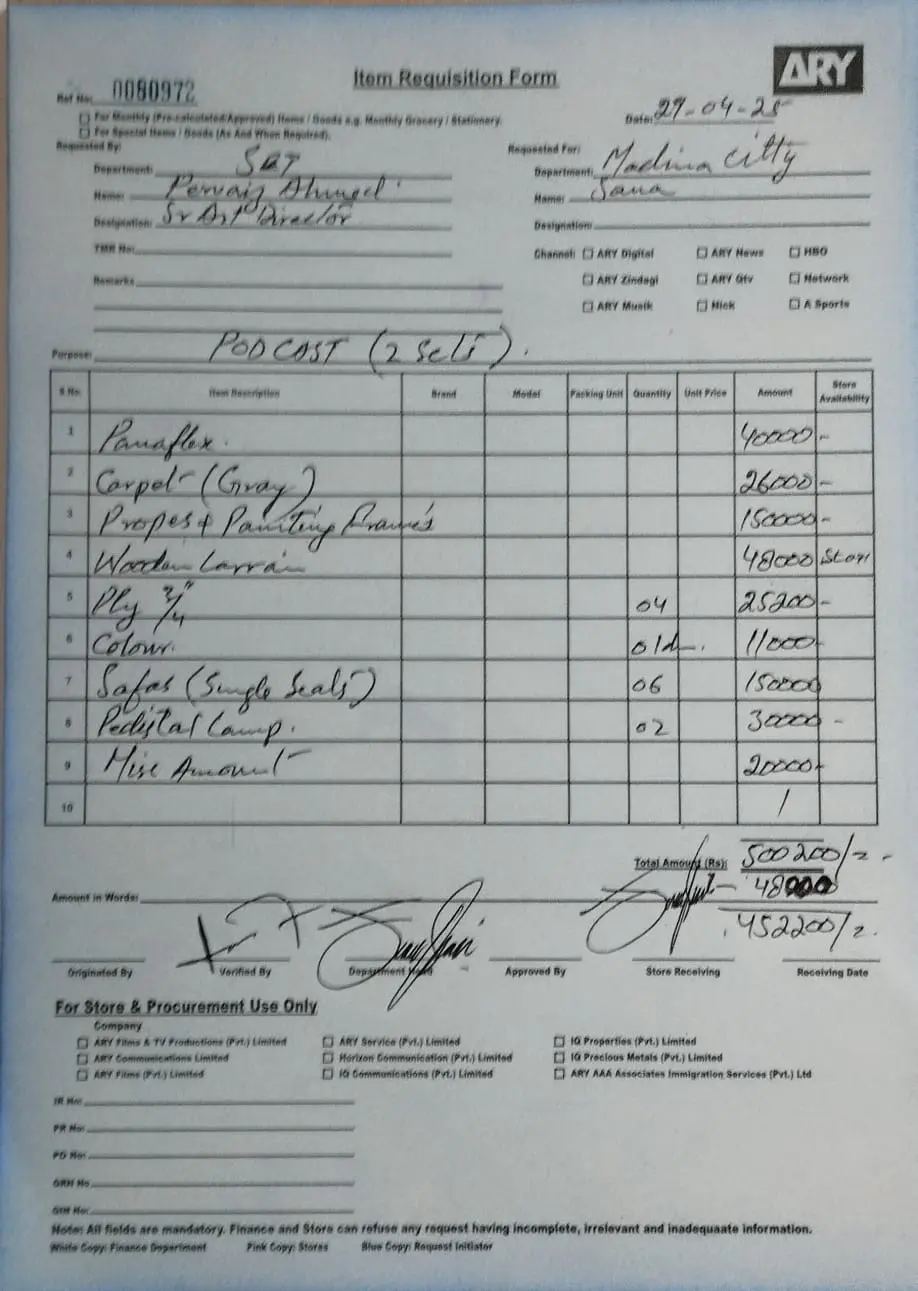 Item Requisition Form
ARY
Ref No: 0080972
Date: 29-04-25
For Monthly (Pre-calculated/Approved) Items / Goods e.g. Monthly Grocery / Stationery.
For Special Items / Goods (As And When Required).
Requested By:
Department: SET
Name: Pervaiz Ahmed
Designation: Sr Art Director
TMR No:
Remarks
Requested For:
Department: Madina Citty
Name: Sana
Designation:
Channel: ARY Digital ARY News HBO
ARY Zindagi ARY Qtv Network
ARY Musik Nick A Sports
Purpose: PODCOST (2 Sets).
S No. Item Description Brand Model Packing Unit Quantity Unit Price Amount Store Availability
1 Panaflex. 40000-
2 Carpet (Gray) 26000-
3 Propes & Painting Frames 150000-
4 Wooden 48000 Store
5 Ply 3/4" 04 25200-
6 Colour. 11000-
7 Safas (Single Seats) 06 150000
8 Pedistal Lamp. 02 30000-
9 Misc Amount 20000-
10
Total Amount (Rs): 500200/=
48000
452200/=
Amount in Words:
Originated By Verified By Department Head Approved By Store Receiving Receiving Date
For Store & Procurement Use Only
Company
ARY Films & TV Productions (Pvt.) Limited ARY Service (Pvt.) Limited IQ Properties (Pvt.) Limited
ARY Communications Limited Horizon Communication (Pvt.) Limited IQ Precious Metals (Pvt.) Limited
ARY Films (Pvt.) Limited IQ Communications (Pvt.) Limited ARY AAA Associates Immigration Services (Pvt.) Ltd
IR No:
PR No:
PO No:
GRN No
GIN No:
Note: All fields are mandatory. Finance and Store can refuse any request having incomplete, irrelevant and inadequaate information.
White Copy: Finance Department Pink Copy: Stores Blue Copy: Request Initiator